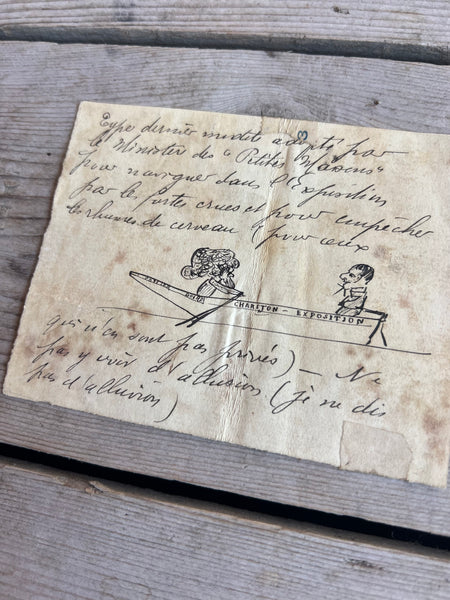 Type dernier modèle adopté par
le Ministère des "Petites Maisons"
pour naviguer dans l'Exposition
par les fortes crues et pour empêcher
les rhumes de cerveau (pour ceux
CHARETON - EXPOSITION
qui n'en sont pas privés) — Ne
pas y voir d'allusion (je ne dis
pas d'alluvion)